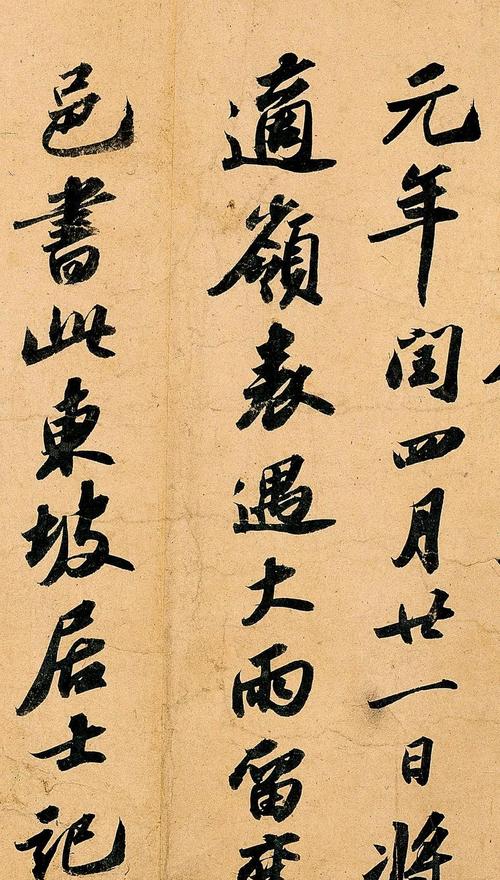 元年閏四月廿一日將
適嶺表遇大雨留襄
邑書此東坡居士記